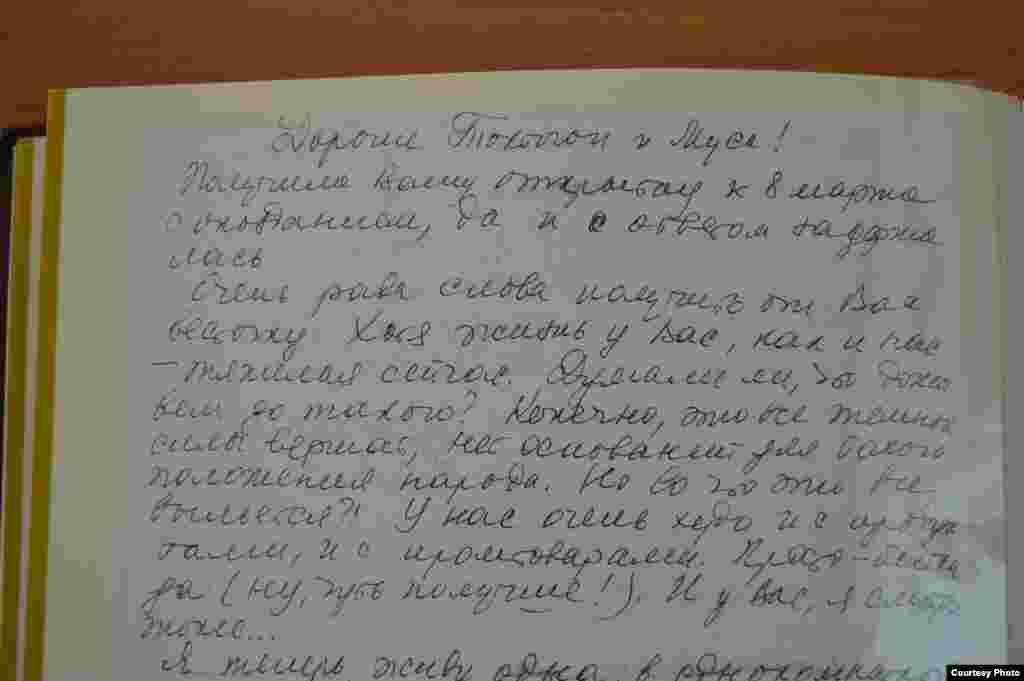 Дорогие Токтогон и Муса!
Получила Вашу открытку к 8 марта
с опозданием, да и с ответом задержа
лась
Очень рада снова получить от Вас
весточку. Хотя жизнь у Вас, как и нас
– тяжелая сейчас. Думали ли, что дожи
вем до такого? Конечно, это все темные
силы вершат, нет оснований для такого
положения народа. Но во что это все
выльется?! У нас очень худо и с продук
тами, и с промтоварами. Прямо-
да (ну, чуть получше!). И у Вас, я слыш
тоже...
Я теперь живу одна в однокомнатно
Courtesy Photo